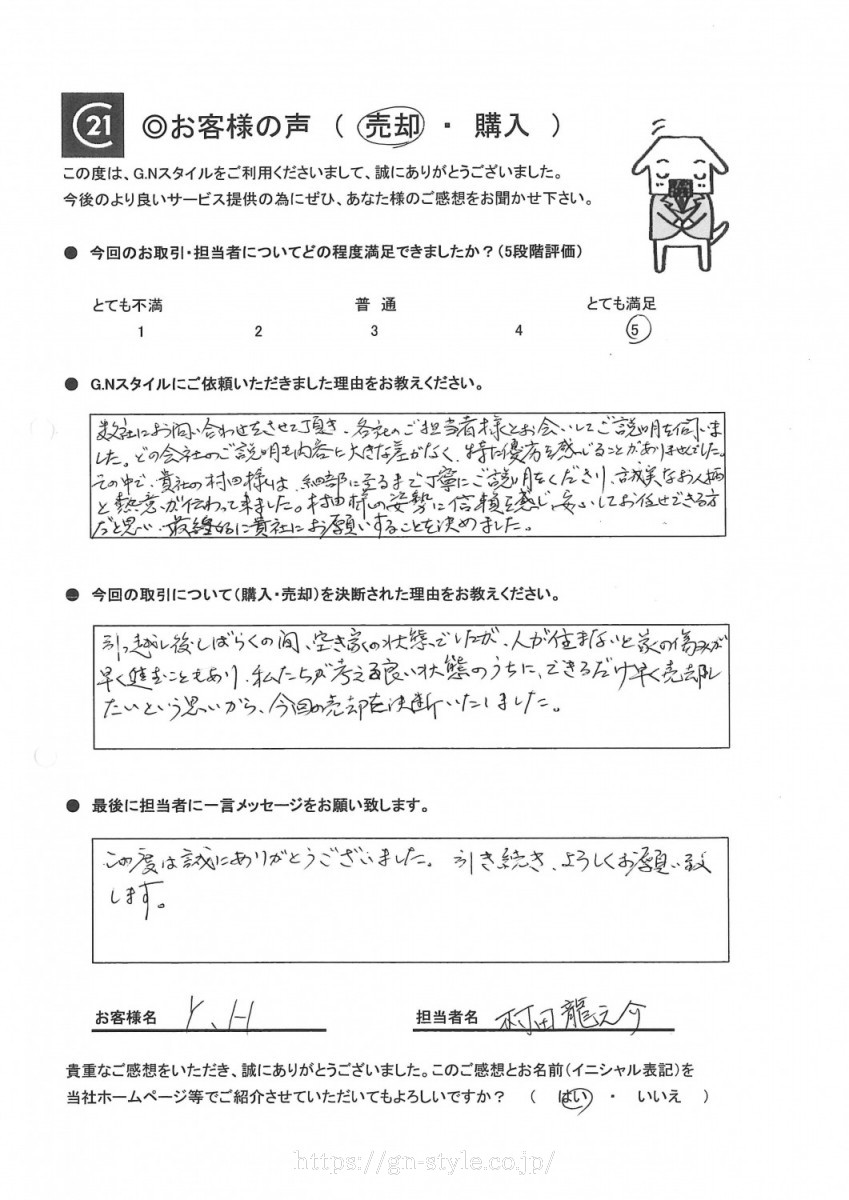 C21 ◎お客様の声 ( 売却 ・ 購入 )
この度は、G.Nスタイルをご利用くださいまして、誠にありがとうございました。
今後のより良いサービス提供の為にぜひ、あなた様のご感想をお聞かせ下さい。
● 今回のお取引・担当者についてどの程度満足できましたか？(5段階評価)
とても不満 普 通 とても満足
1 2 3 4 5
● G.Nスタイルにご依頼いただきました理由をお教えください。
数社にお問い合わせをさせて頂き、各社のご担当者様とお会いしてご説明を伺いま
した。どの会社のご説明も内容に大きな差がなく、特に優劣を感じることがありませんでした。
その中で、貴社の村田様は、細部に至るまで丁寧にご説明をくださり、誠実なお人柄
と熱意が伝わって来ました。村田様の姿勢に信頼を感じ、安心してお任せできる方
だと思い、最終的に貴社にお願いすることを決めました。
● 今回の取引について(購入・売却)を決断された理由をお教えください。
引っ越し後しばらくの間、空き家の状態でしたが、人が住まないと家の傷みが
早く進むこともあり、私たちが考える良い状態のうちに、できるだけ早く売却し
たいという思いから、今回の売却を決断いたしました。
● 最後に担当者に一言メッセージをお願い致します。
この度は誠にありがとうございました。引き続き、よろしくお願い致
します。
お客様名 Y.H 担当者名 村田龍之介
貴重なご感想をいただき、誠にありがとうございました。このご感想とお名前(イニシャル表記)を
当社ホームページ等でご紹介させていただいてもよろしいですか？ ( はい ・ いいえ )
https://gn-style.co.jp/